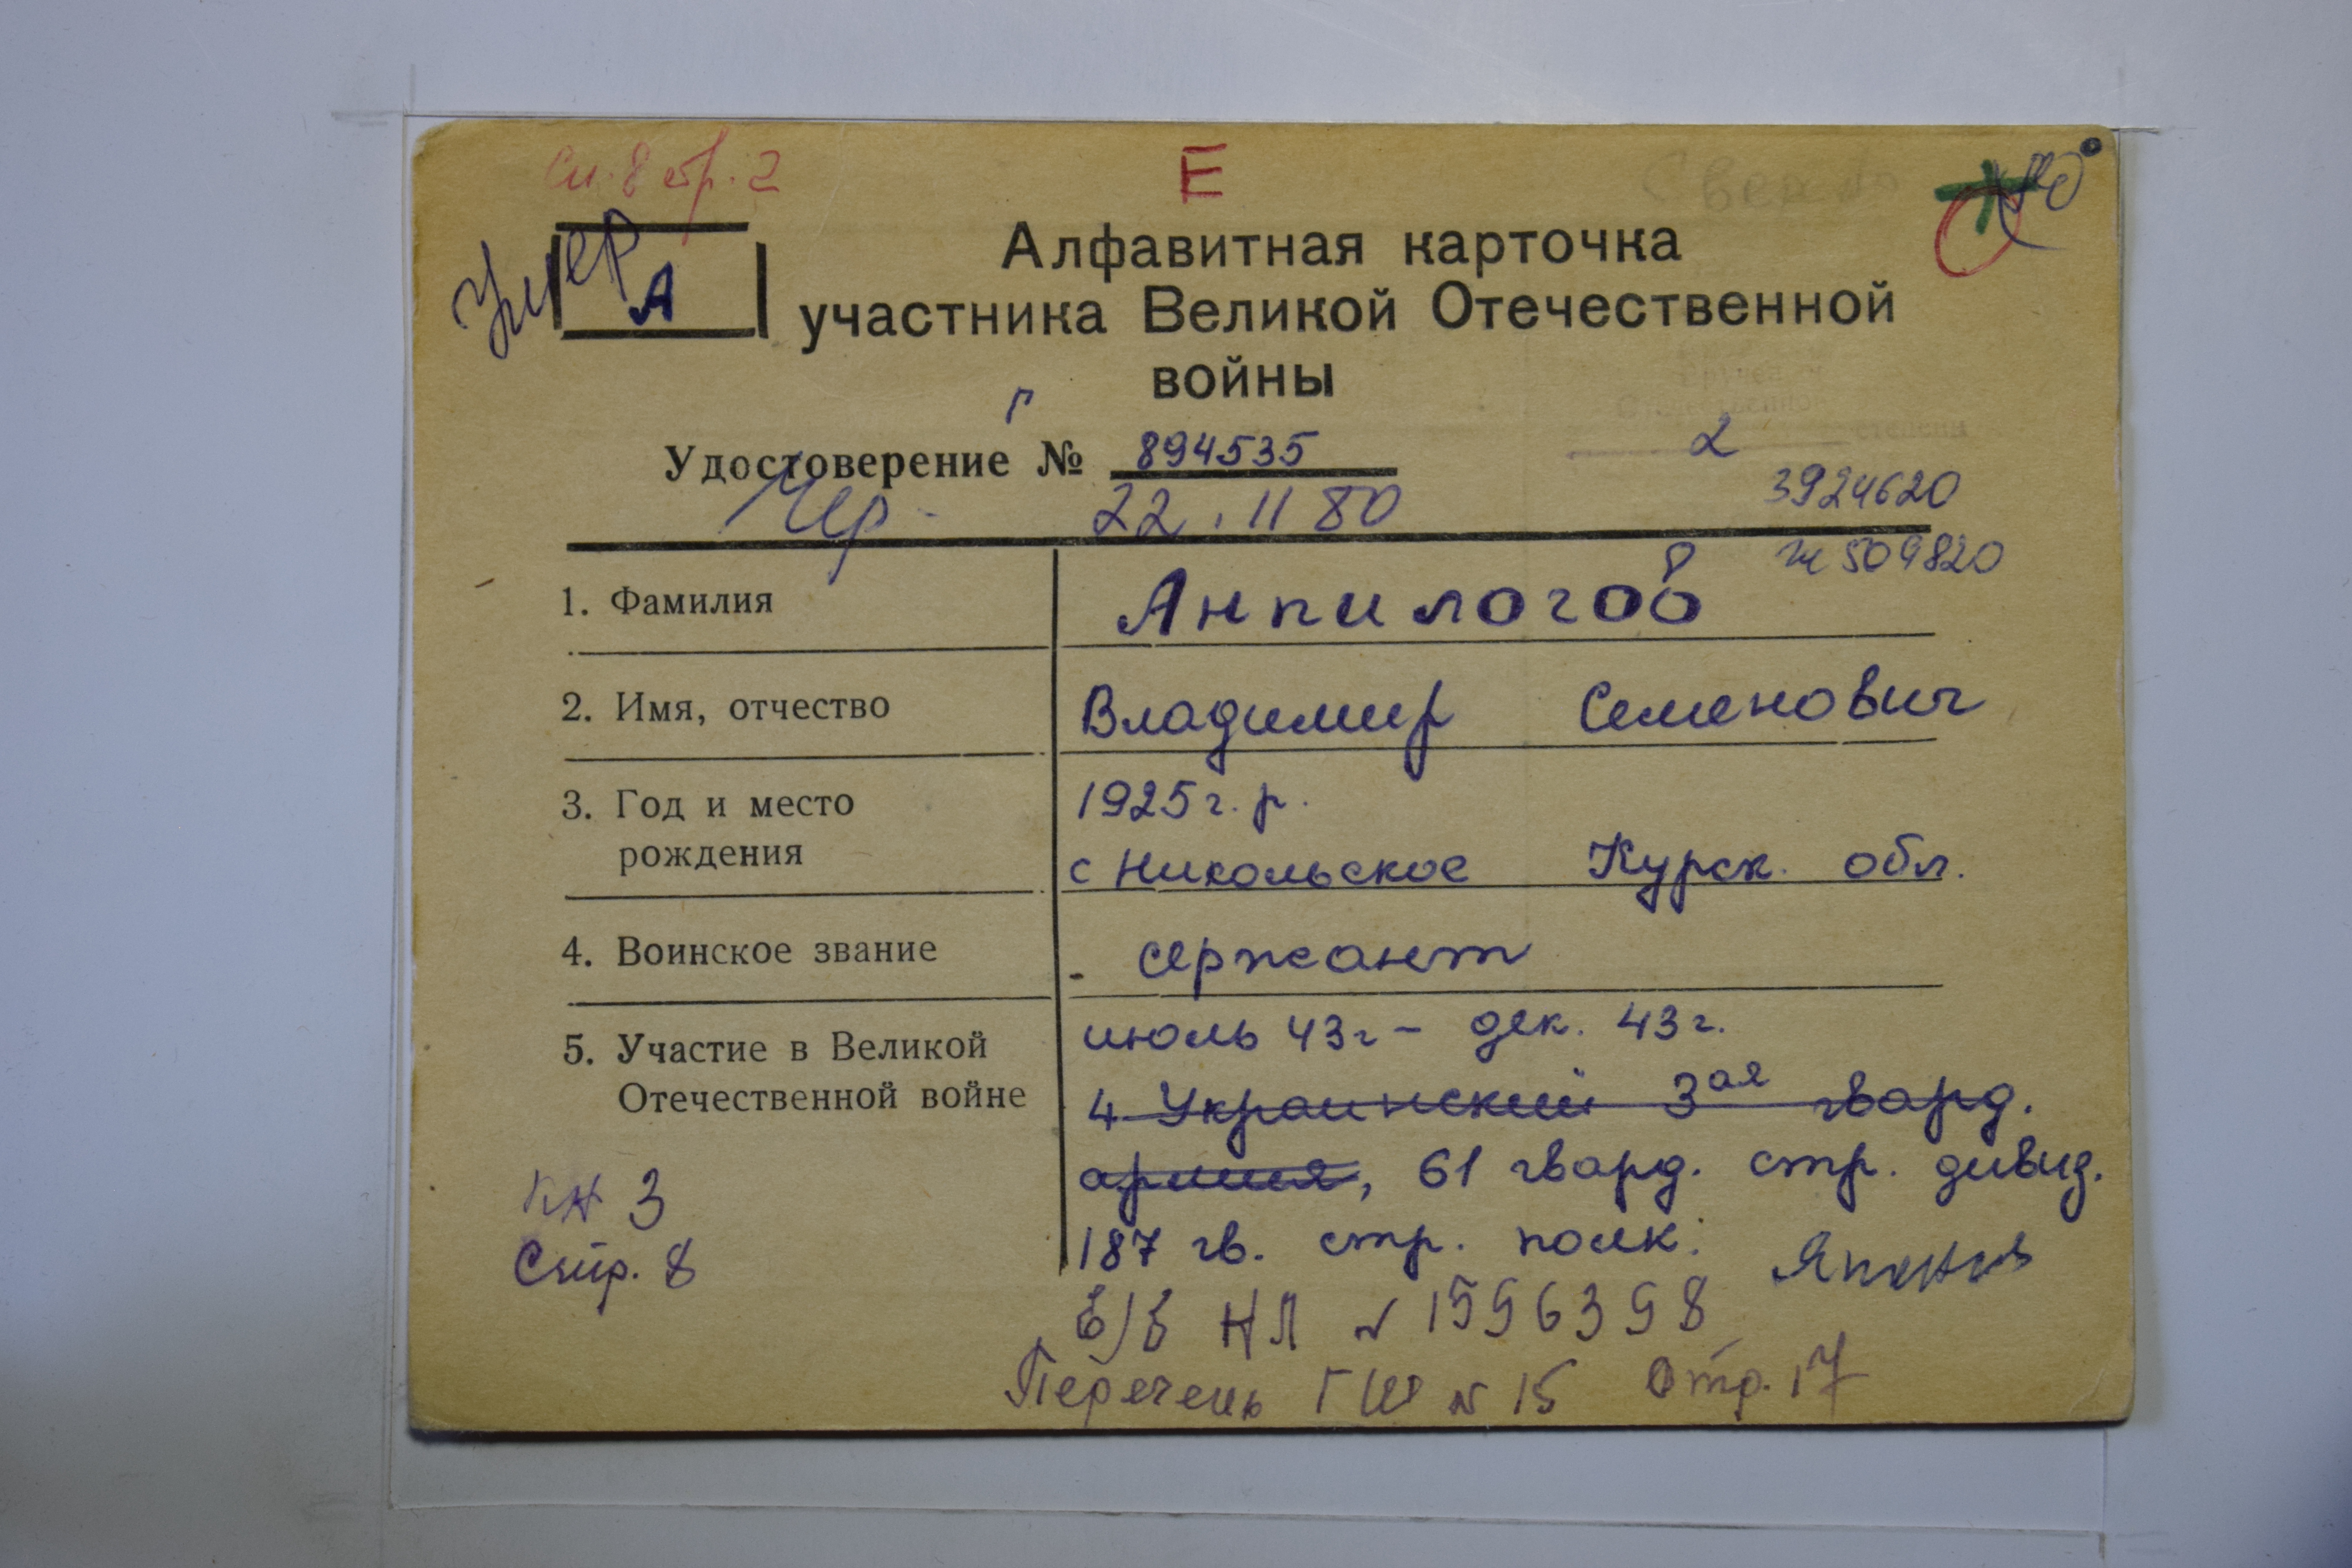 Сп. 8 стр. 2
Е
Умер
А
Алфавитная карточка
участника Великой Отечественной
войны
Г
Удостоверение № 894535
2
степени
22. 11 80
3924620
№ 509820
1. Фамилия Анпилогов
2. Имя, отчество Владимир Семенович
3. Год и место 1925 г. р.
рождения с Никольское Курск. обл.
4. Воинское звание - сержант
5. Участие в Великой июль 43г - дек. 43г.
Отечественной войне 4 Украинский 3ая гвард.
армия, 61 гвард. стр. дивид.
кн 3 187 гв. стр. полк.
Стр. 8
В/б НЛ № 1596398
Перечень ГШ № 15 Стр. 17